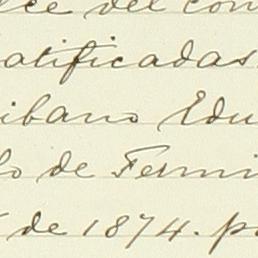 ce del con
atificadas
ibano Edu
lo de Fermi
de 1874. p